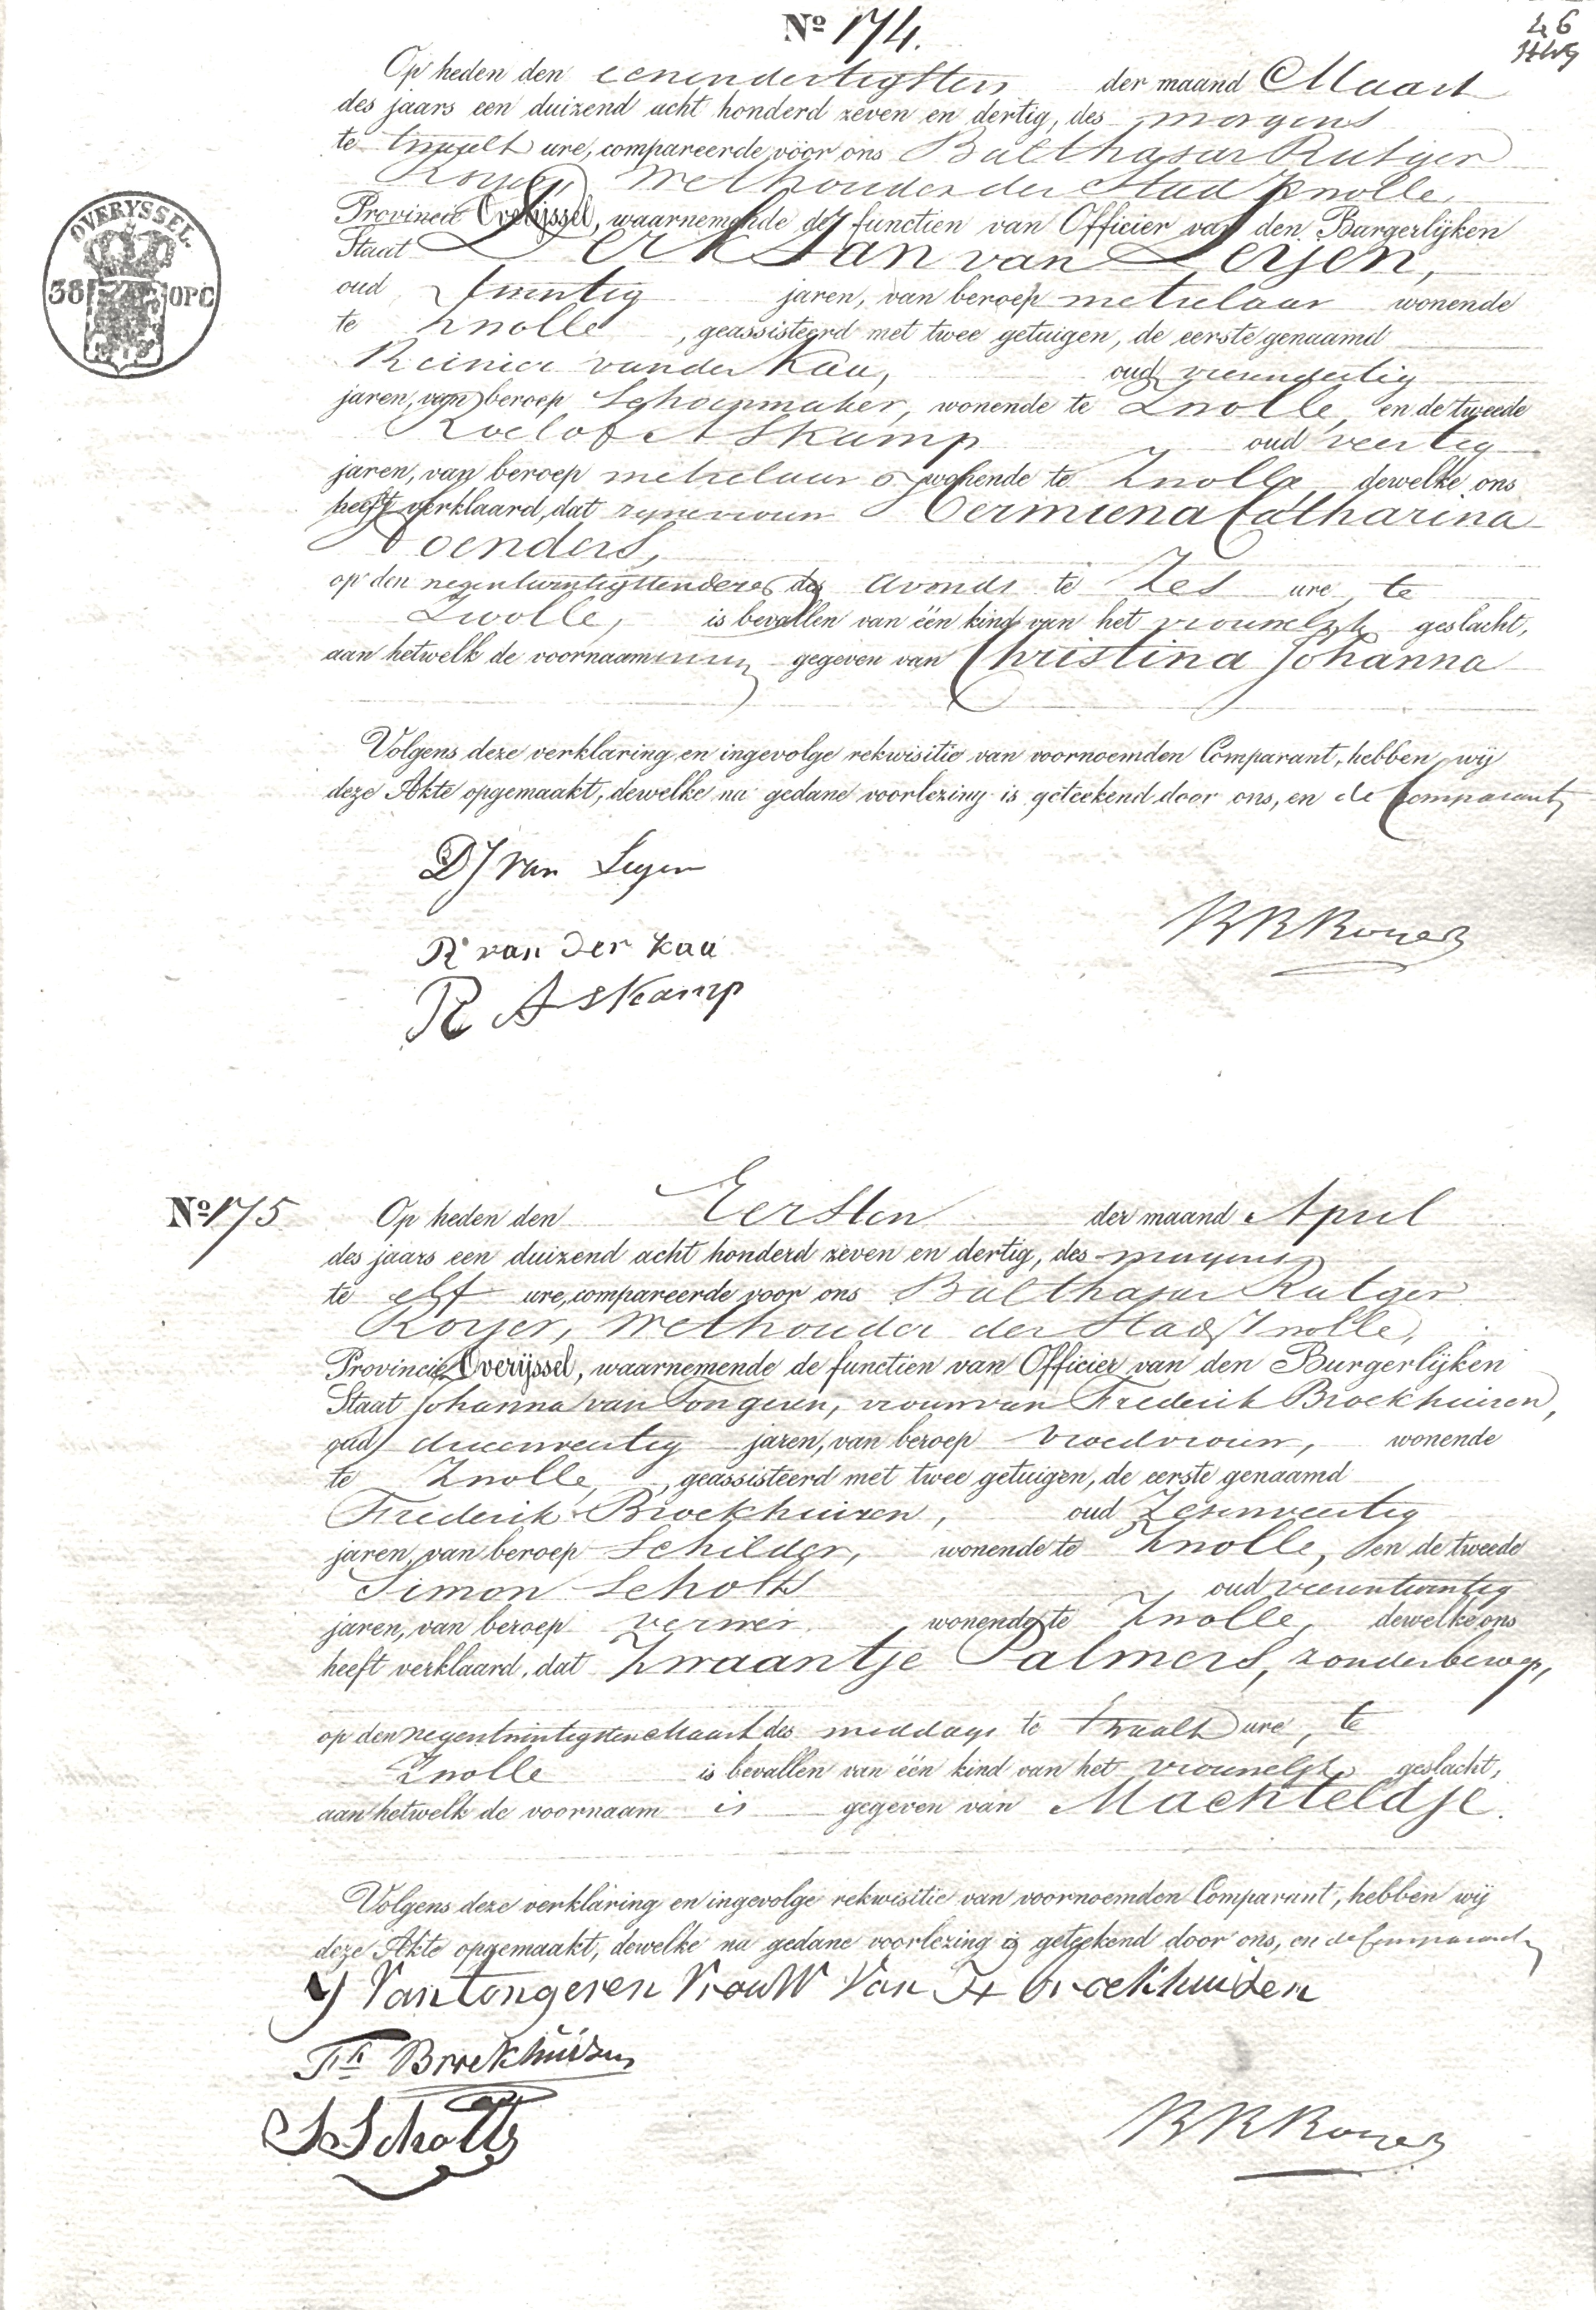 Nº 174.
46
OVERYSSEL.
38 OPC
Op heden den eenendertigsten der maand Maart
des jaars een duizend acht honderd zeven en dertig, des morgens
te twaalf ure, compareerde voor ons Balthasar Rutger
Royer, Wethouder der Stad Zwolle,
Provincie Overijssel, waarnemende de functien van Officier van den Burgerlijken
Staat Derk Jan van Leijen,
oud twintig jaren, van beroep metselaar wonende
te Zwolle, geassisteerd met twee getuigen, de eerste genaamd
Reinier van der Kaa, oud vierendertig
jaren, van beroep Schoenmaker, wonende te Zwolle, en de tweede
Roelof Askamp oud veertig
jaren, van beroep metselaar wonende te Zwolle dewelke ons
heeft verklaard, dat zijne vrouw Hermiena Catharina
Loenders,
op den negentwintigsten dezer des avonds te Zes ure, te
Zwolle, is bevallen van één kind van het vrouwelijk geslacht,
aan hetwelk de voornaamen zijn gegeven van Christina Johanna
Volgens deze verklaring en ingevolge rekwisitie van voornoemden Comparant, hebben wij
deze Akte opgemaakt, dewelke na gedane voorlezing is geteekend door ons, en de Comparant
DJ van Leijen
BR Royer
R van der Kaa
R Askamp
Nº 175
Op heden den Eersten der maand April
des jaars een duizend acht honderd zeven en dertig, des morgens
te elf ure, compareerde voor ons Balthasar Rutger
Royer, Wethouder der Stad Zwolle,
Provincie Overijssel, waarnemende de functien van Officier van den Burgerlijken
Staat Johanna van Tongeren, vrouw van Frederik Broekhuizen,
oud drieenveertig jaren, van beroep Vroedvrouw, wonende
te Zwolle, geassisteerd met twee getuigen, de eerste genaamd
Frederik Broekhuizen, oud Zesenveertig
jaren, van beroep Schilder, wonende te Zwolle, en de tweede
Simon Scholts oud vierentwintig
jaren, van beroep verwer wonende te Zwolle, dewelke ons
heeft verklaard, dat Zwaantje Palmers, zonder beroep,
op den negentwintigsten Maart des middags te twaalf ure, te
Zwolle is bevallen van één kind van het vrouwelijk geslacht,
aan hetwelk de voornaam is gegeven van Machteldje.
Volgens deze verklaring en ingevolge rekwisitie van voornoemden Comparant, hebben wij
deze Akte opgemaakt, dewelke na gedane voorlezing is geteekend door ons, en de Comparant
J Van tongeren Vrouw Van Fr broekhuiden
Fk Broekhuizen
S Scholts
BR Royer